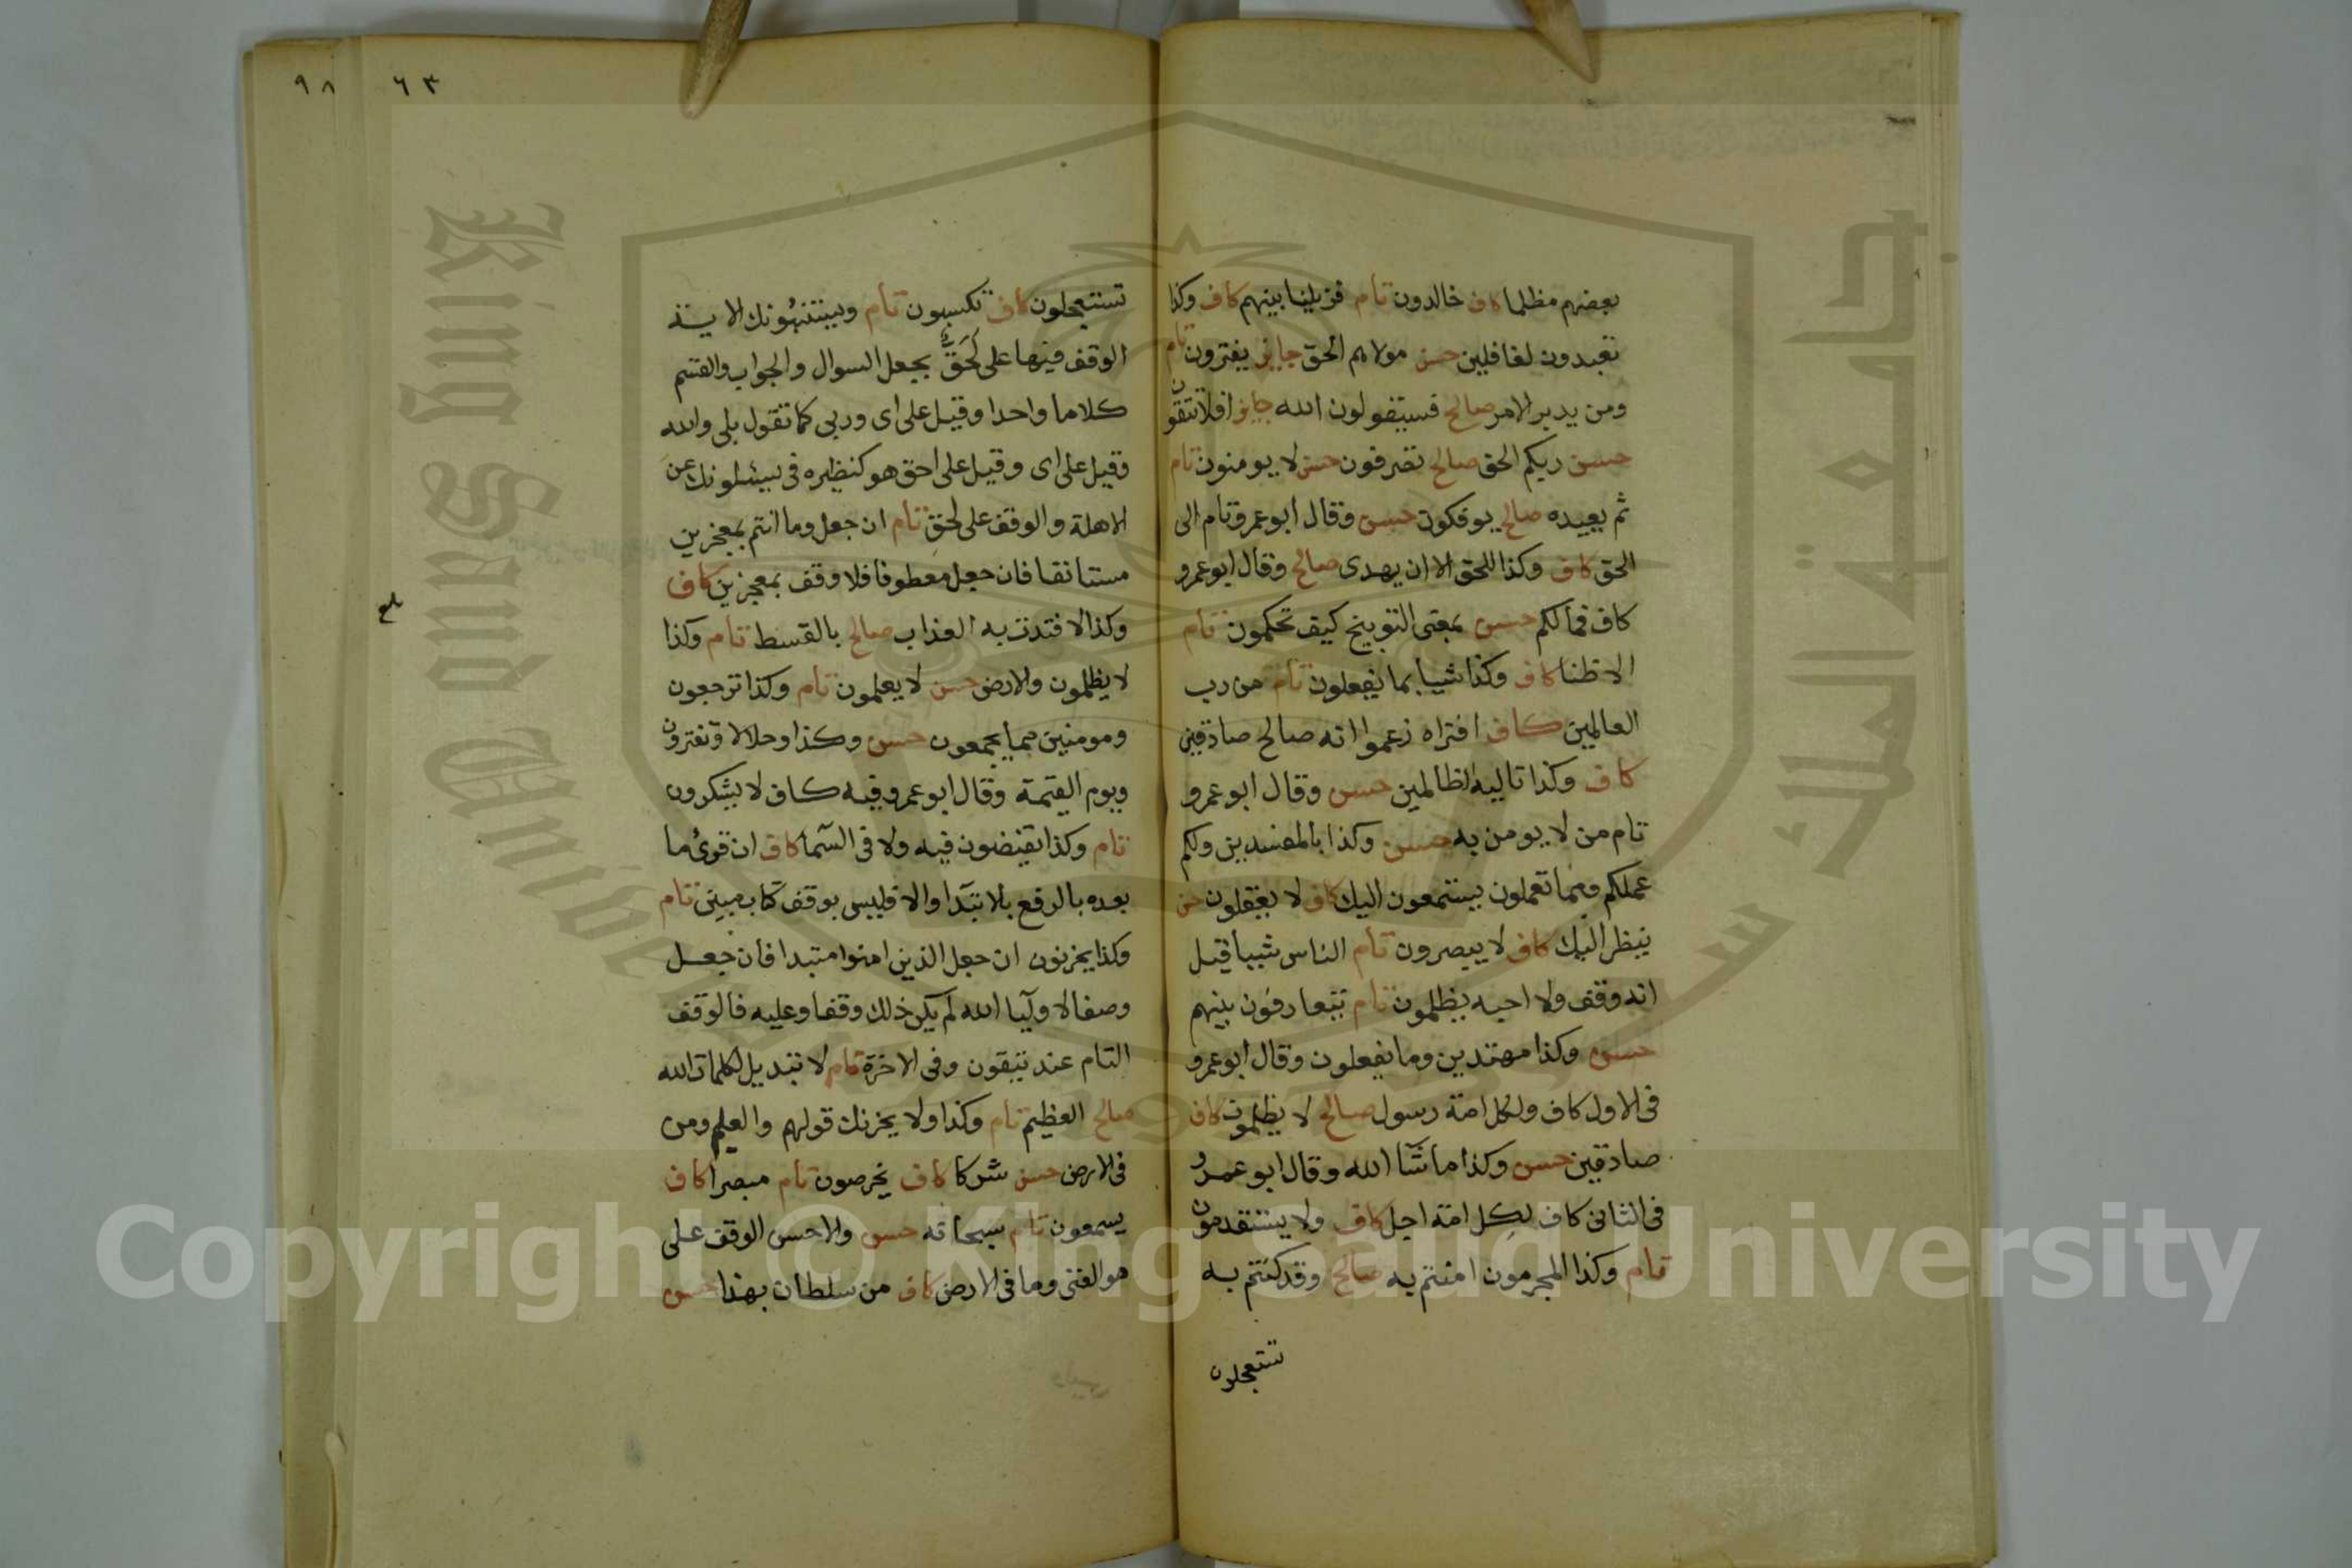 بعضهم مظلما كاف خالدون تام فزيلنا بينهم كاف وكذا
تعبدون لغافلين حسن مولاهم الحق جايز يفترون تام
ومن يدبر الامر صالح فسيقولون الله جايز افلا تتقون
حسن ربكم الحق صالح تصرفون حسن لا يومنون تام
ثم يعيده صالح يوفكون حسن وقال ابو عمرو تام الى
الحق كاف وكذا للحق الا ان يهدى صالح وقال ابو عمرو
كاف فمالكم حسن بمعنى التوبيخ كيف تحكمون تام
الا ظنا كاف وكذا شيا بما يفعلون تام من رب
العالمين كاف افتراه زعموا انه صالح صادقين
كاف وكذا تاليه الظالمين حسن وقال ابو عمرو
تام من لا يومن به حسن وكذا بالمفسدين ولكم
عملكم ومما تعملون يستمعون اليك كاف لا يعقلون حسن
ينظر اليك كاف لا يبصرون تام الناس شييا قيل
انه وقف ولا احبه يظلمون تام يتعارفون بينهم
حسن وكذا مهتدين وما يفعلون وقال ابو عمرو
فى الاول كاف ولكل امة رسول صالح لا يظلمون كاف
صادقين حسن وكذا ما شآ الله وقال ابو عمرو
فى الثانى كاف لكل امة اجل كاف ولا يستقدمون
تام وكذا المجرمون امنتم به صالح وقد كنتم به
تستعجلون
٦٣
٩٨
تستعجلون كاف تكسبون تام ويستنبونك الاية
الوقف فيها على لحق بجعل السوال والجواب والقسم
كلاما واحدا وقيل على اى وربى كما تقول بلى والله
وقيل على اى وقيل على احق هو كنظيره فى يسئلونك عن
الاهلة والوقف على لحق تام ان جعل وما انتم بمعجزين
مستانفا فان جعل معطوفا فلا وقف بمعجزين كاف
وكذا لافتدت به العذاب صالح بالقسط تام وكذا
لا يظلمون والارض حسن لا يعلمون تام وكذا ترجعون
ومومنين مما يجمعون حسن وكذا وحلالا وتفترون
ويوم القيمة وقال ابو عمرو فيه كاف لا يشكرون
تام وكذا تفيضون فيه ولا فى السمآ كاف ان قرئ ما
بعده بالرفع بالابتدآ والا فليس بوقف كتاب مبين تام
وكذا يحزنون ان جعل الذين امنوا مبتدا فان جعل
وصفا لاوليآ الله لم يكن ذلك وقفا وعليه فالوقف
التام عند يتقون وفى الاخرة تام لا تبديل لكلمات الله
صالح العظيم تام وكذا ولا يحزنك قولهم والعليم ومن
فى الارض حسن شركا كاف يخرصون تام مبصرا كاف
يسمعون تام سبحانه حسن والاحسن الوقف على
هو الغنى وما فى الارض كاف من سلطان بهذا حسن
بلغ
King Saud Unive
جامعة الملك س
Copyright © King Saud University